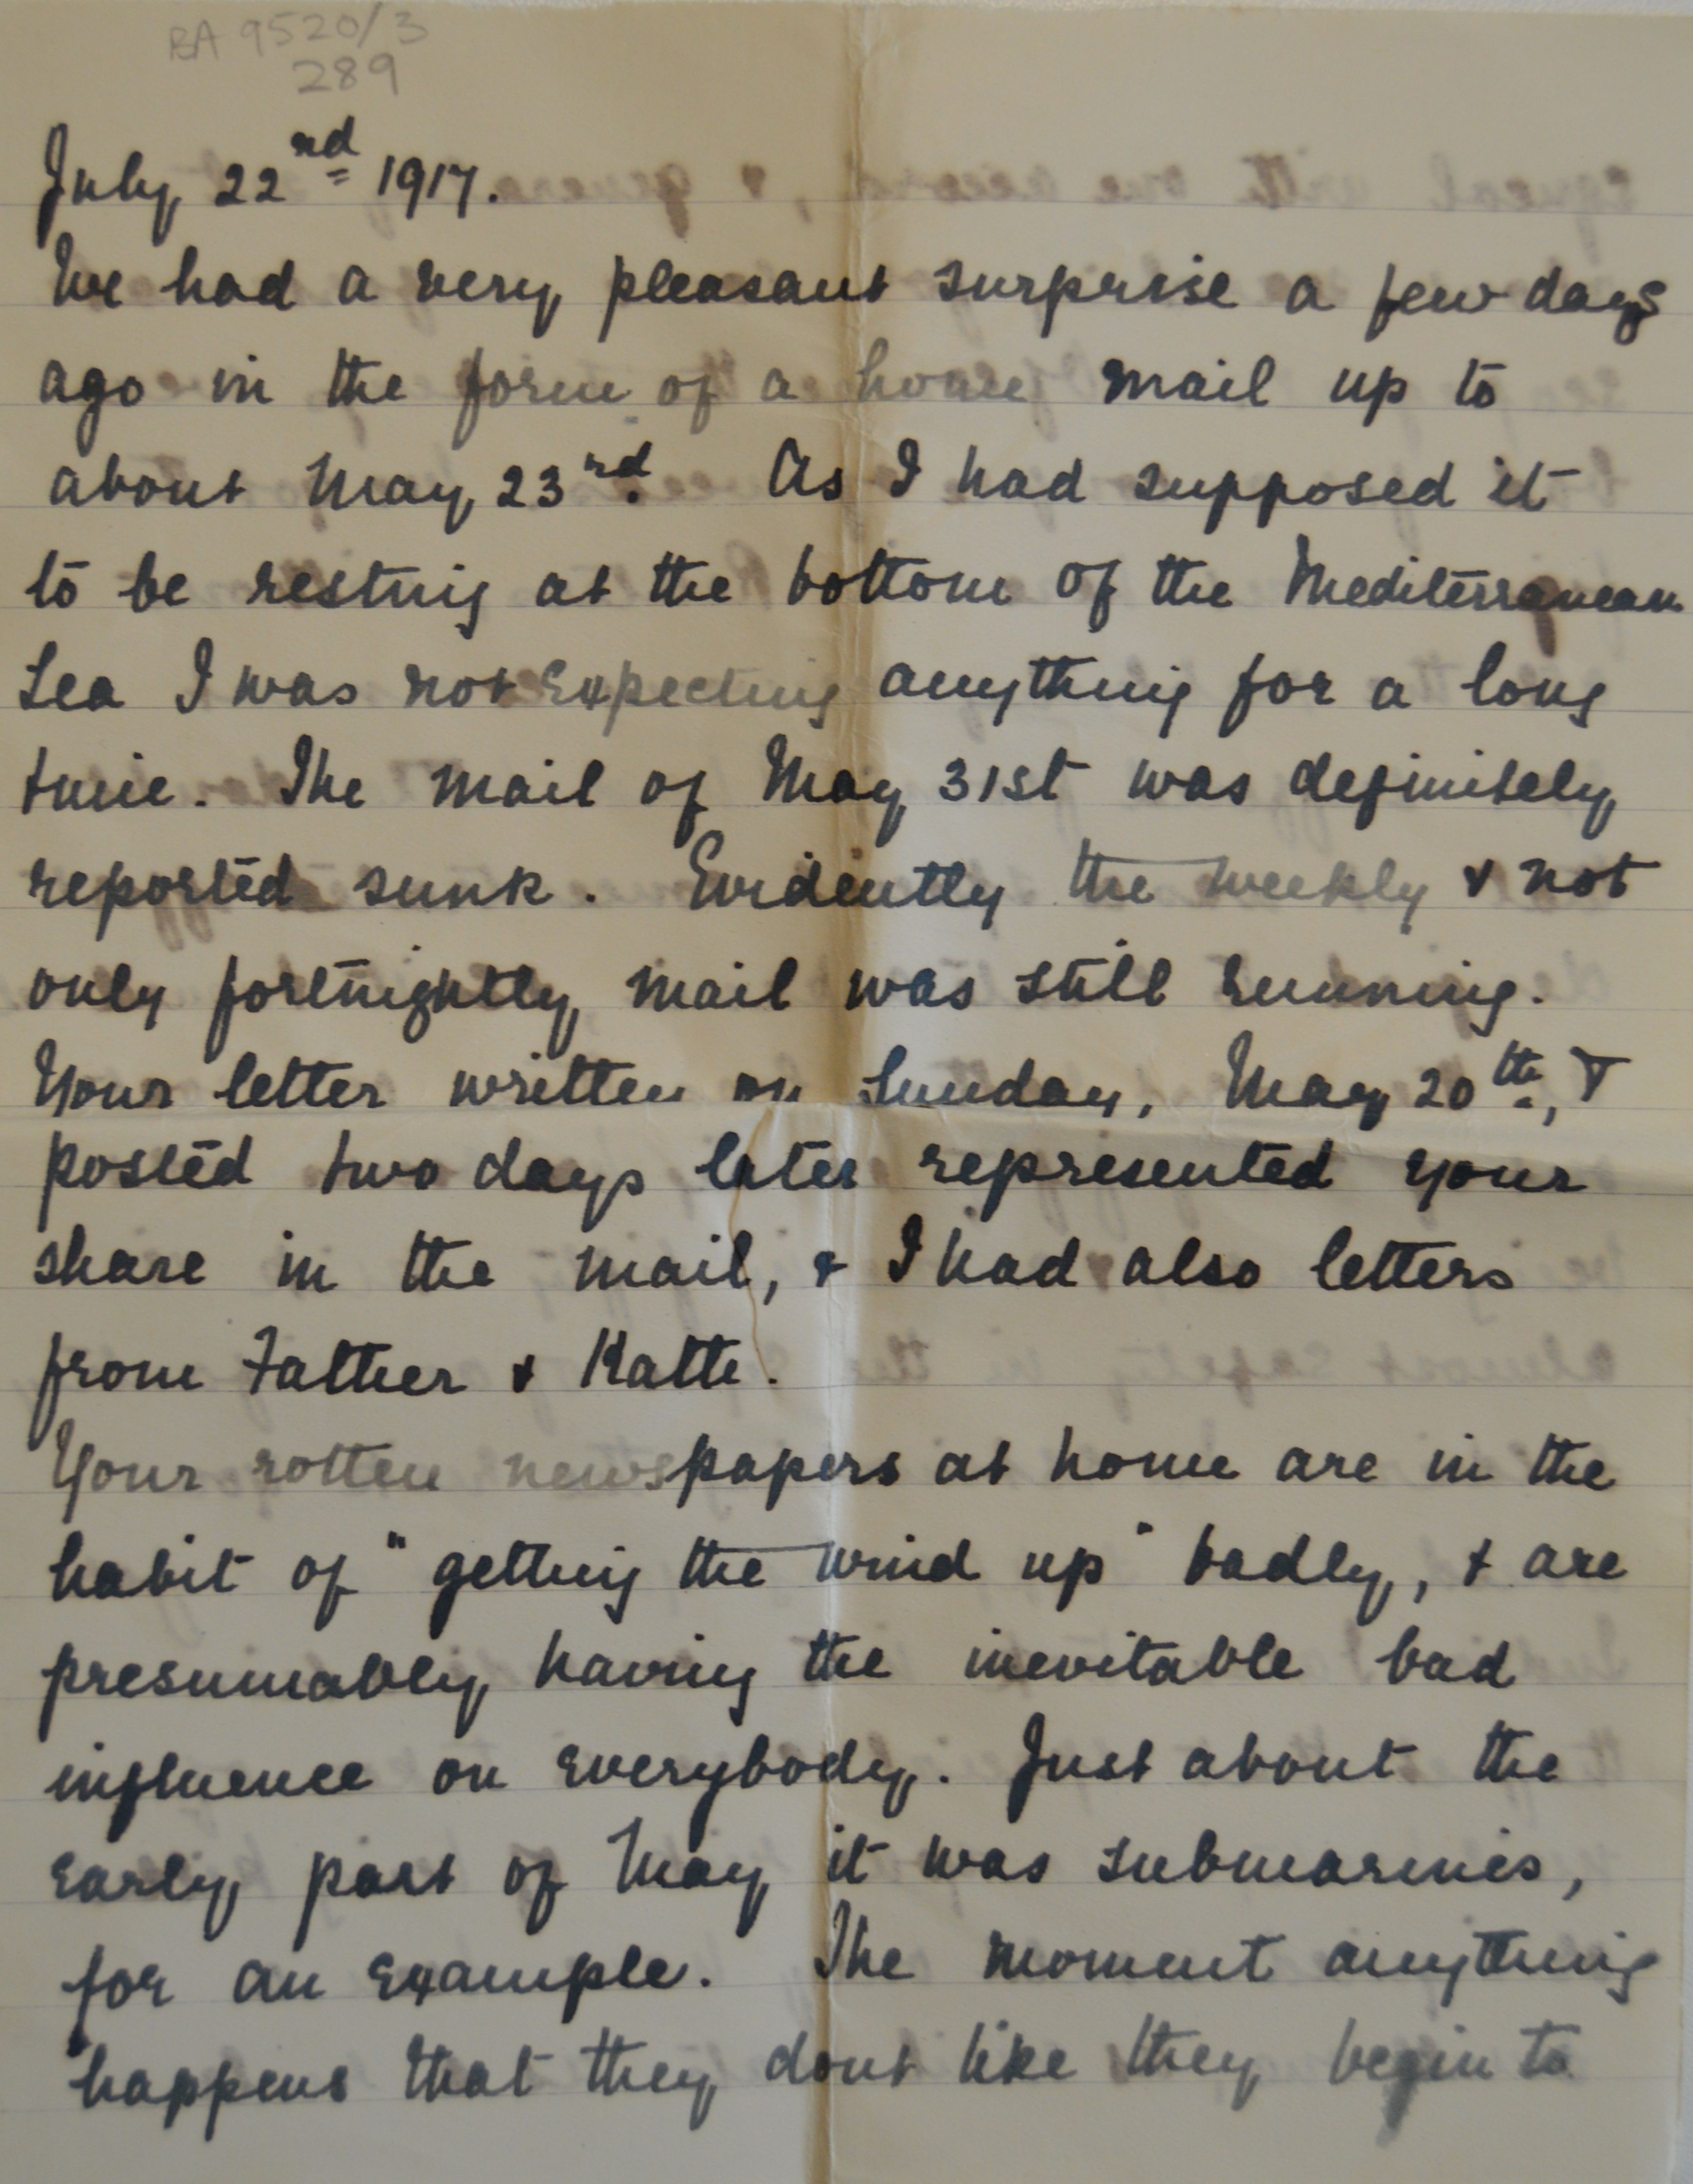 BA 9520/3
289
July 22nd 1917.
We had a very pleasant surprise a few days
ago in the form of a home mail up to
about May 23rd. As I had supposed it
to be resting at the bottom of the Mediterranean
Sea I was not expecting anything for a long
time. The mail of May 31st was definitely
reported sunk. Evidently the weekly & not
only fortnightly mail was still running.
Your letter written on Sunday, May 20th, &
posted two days later represented your
share in the mail, & I had also letters
from Father & Katte.
Your rotten newspapers at home are in the
habit of "getting the wind up" badly, & are
presumably having the inevitable bad
influence on everybody. Just about the
early part of May it was submarines,
for an example. The moment anything
happens that they dont like they begin to